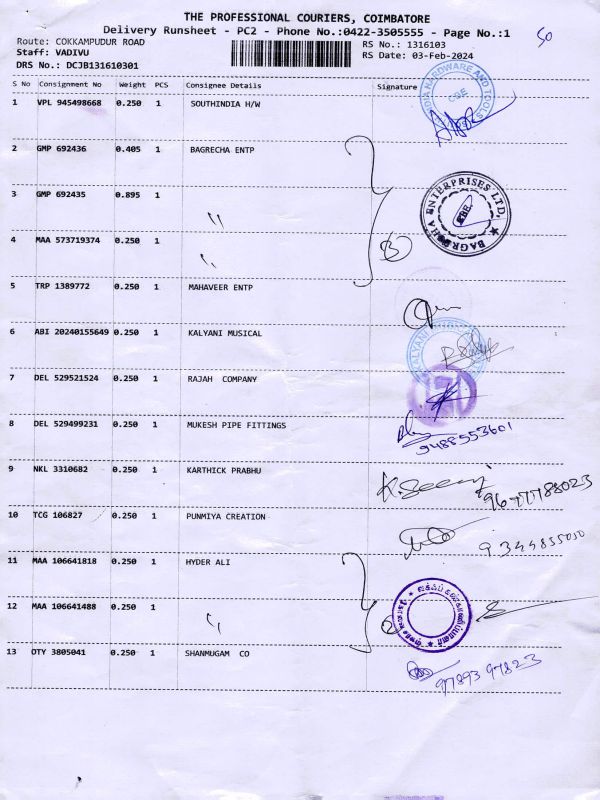 THE PROFESSIONAL COURIERS, COIMBATORE
Delivery Runsheet - PC2 - Phone No.:0422-3505555 - Page No.:1
50
Route: COKKAMPUDUR ROAD
RS No.: 1316103
Staff: VADIVU
RS Date: 03-Feb-2024
DRS No.: DCJB131610301
S No Consignment No Weight PCS Consignee Details Signature
1 VPL 945498668 0.250 1 SOUTHINDIA H/W
2 GMP 692436 0.405 1 BAGRECHA ENTP
3 GMP 692435 0.895 1 "
4 MAA 573719374 0.250 1 "
3
ENTERPRISES LTD.
5 TRP 1389772 0.250 1 MAHAVEER ENTP
6 ABI 20240155649 0.250 1 KALYANI MUSICAL
KALYANI
7 DEL 529521524 0.250 1 RAJAH COMPANY
8 DEL 529499231 0.250 1 MUKESH PIPE FITTINGS
9488553601
9 NKL 3310682 0.250 1 KARTHICK PRABHU
9677788023
10 TCG 106827 0.250 1 PUNMIYA CREATION
11 MAA 106641818 0.250 1 HYDER ALI
12 MAA 106641488 0.250 1 "
2
13 OTY 3805041 0.250 1 SHANMUGAM CO
9789397823